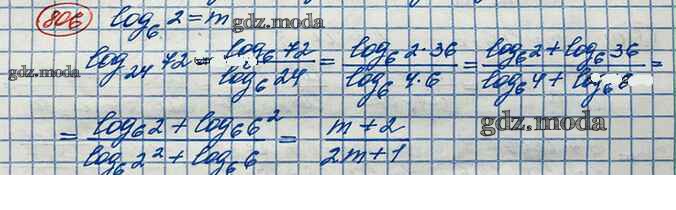 806 log₆ 2 = m gdz.moda
gdz.moda log₂₄ 72 = log₆ 72 / log₆ 24 = log₆ 2·36 / log₆ 4·6 = log₆ 2 + log₆ 36 / log₆ 4 + log₆ 6 =
= log₆ 2 + log₆ 6² / log₆ 2² + log₆ 6 = m + 2 / 2m + 1 gdz.moda